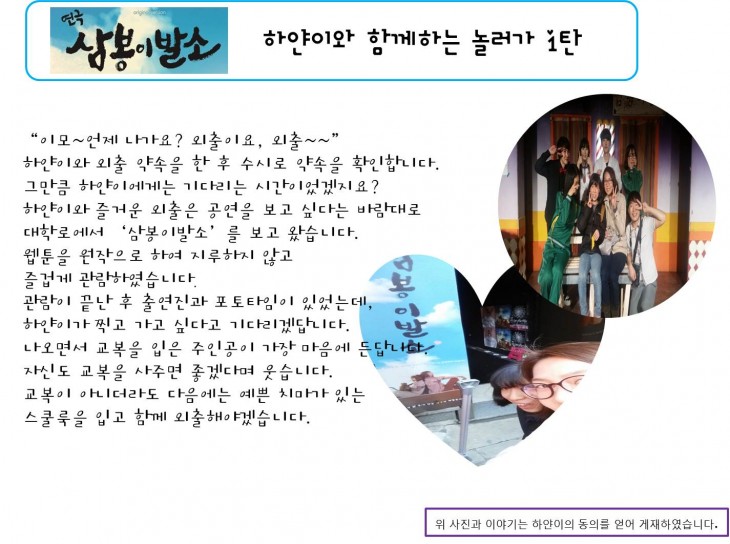 연극
삼봉이발소
하얀이와 함께하는 놀러가 1탄
“이모~언제 나가요? 외출이요, 외출~~”
하얀이와 외출 약속을 한 후 수시로 약속을 확인합니다.
그만큼 하얀이에게는 기다리는 시간이었겠지요?
하얀이와 즐거운 외출은 공연을 보고 싶다는 바람대로
대학로에서 ‘삼봉이발소’를 보고 왔습니다.
웹툰을 원작으로 하여 지루하지 않고
즐겁게 관람하였습니다.
관람이 끝난 후 출연진과 포토타임이 있었는데,
하얀이가 찍고 가고 싶다고 기다리겠답니다.
나오면서 교복을 입은 주인공이 가장 마음에 든답니다.
자신도 교복을 사주면 좋겠다며 웃습니다.
교복이 아니더라도 다음에는 예쁜 치마가 있는
스쿨룩을 입고 함께 외출해야겠습니다.
삼봉이발
위 사진과 이야기는 하얀이의 동의를 얻어 게재하였습니다.